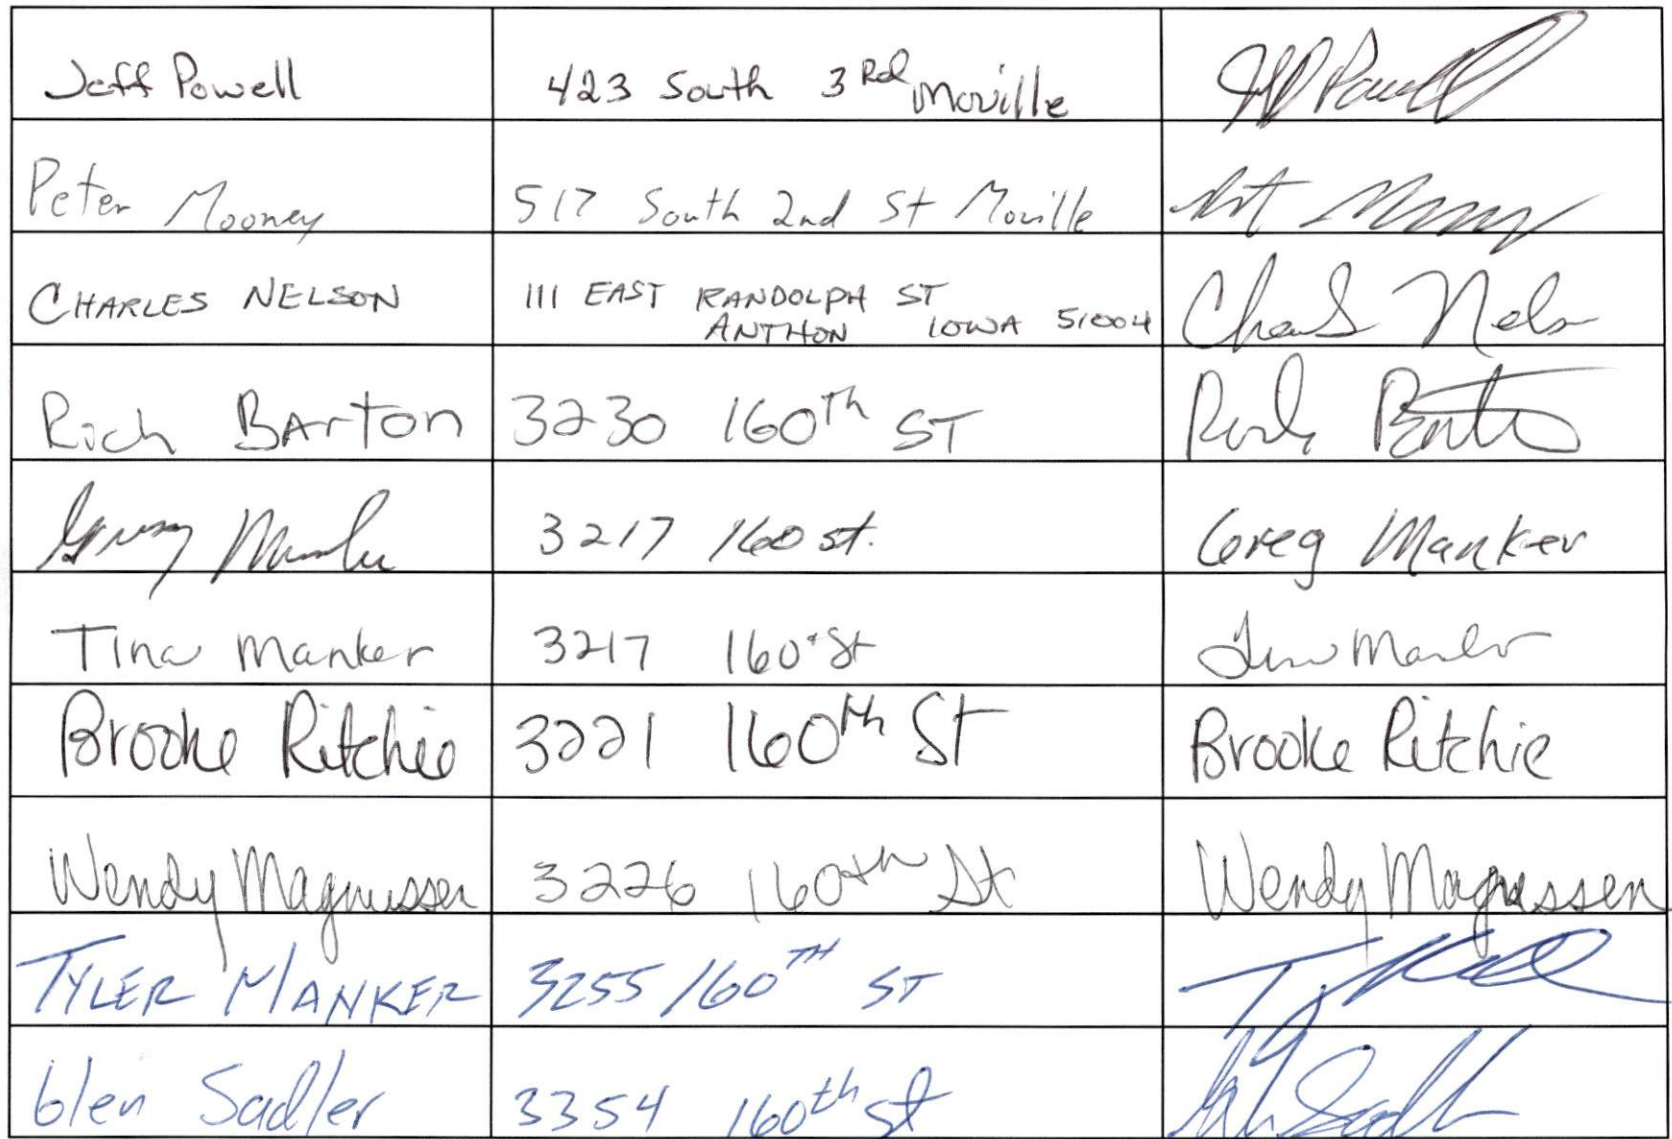 Jeff Powell 423 South 3Rd Moville Jeff Powell
Peter Mooney 517 South 2nd St Moville
CHARLES NELSON 111 EAST RANDOLPH ST Charles Nelson
ANTHON IOWA 51004
Rich Barton 3230 160Th ST Rich Barton
3217 160 st. Greg Manker
Tina Manker 3217 160 St Tina Manker
Brooke Ritchie 3221 160th St Brooke Ritchie
Wendy Magnussen 3226 160th St Wendy Magnussen
TYLER MANKER 3255 160TH ST
Glen Sadler 3354 160th st Glen Sadler